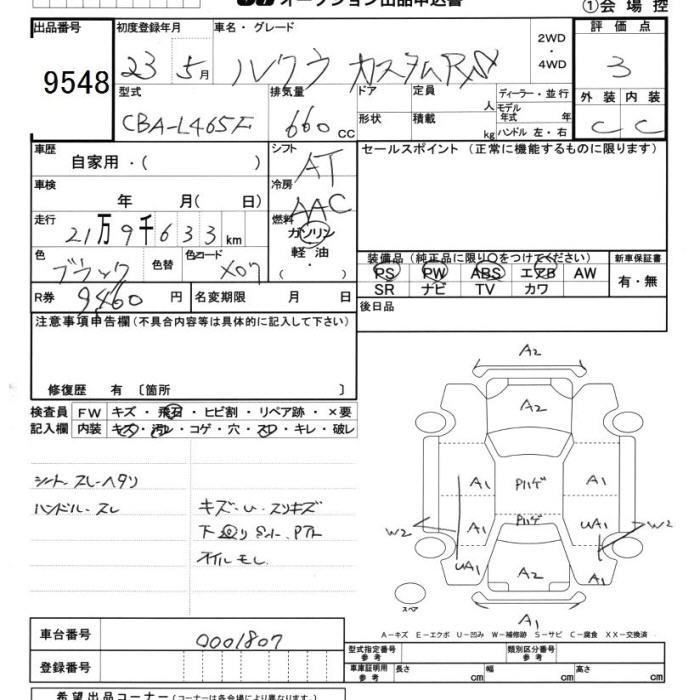 オークション出品申込書
①会場控
出品番号 9548
初度登録年月 23 5月
車名・グレード ルクラ カスタムRリミ
2WD・4WD
評価点 3
型式 CBA-L465F
排気量 660 cc
ドア 形状
定員 人
積載 kg
ディーラー・並行
モデル年式 年
ハンドル 左・右
外装 C
内装 C
車歴 自家用・( )
シフト AT
セールスポイント (正常に機能するものに限ります)
車検 年 月( 日)
冷房 AAC
走行 21万9千633km
燃料 ガソリン・軽油・( )
色 ブラック
色替
色コード X07
装備品 (純正品に限り○をつけてください)
新車保証書 有・無
PS PW ABS エアB AW
SR ナビ TV カワ
R券 9460円
名変期限 月 日
後日品
注意事項申告欄(不具合内容等は具体的に記入して下さい)
修復歴 有 〔箇所 〕
検査員記入欄
FW キズ・飛石・ヒビ割・リペア跡・×要
内装 キズ・汚レ・コゲ・穴・スレ・キレ・破レ
シート スレヘタリ
ハンドル スレ
キズ・U・スリキズ
下廻りSハト、Pアト
オイルモレ
A2
A2
A1 Pハゲ A1
PハゲA1 UA1
W2 W2
UA1 A2 A1
A1
スペア
A-キズ E-エクボ U-凹み W-補修跡 S-サビ C-腐食 XX-交換済
車台番号 0001807
登録番号
型式指定番号 参考
類別区分番号 参考
車庫証明用 参考 長さ cm 幅 cm 高さ cm
希望出品コーナー(コーナーは各会場により異なります)